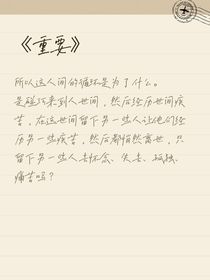 《重要》
所以这人间的循环是为了什么。
是碰巧来到人世间，然后经历世间疾
苦，在这世间留下另一些人让他们经
历另一些疾苦，然后都悄然离世，只
留下另一些人去怀念、失去、孤独、
痛苦吗？